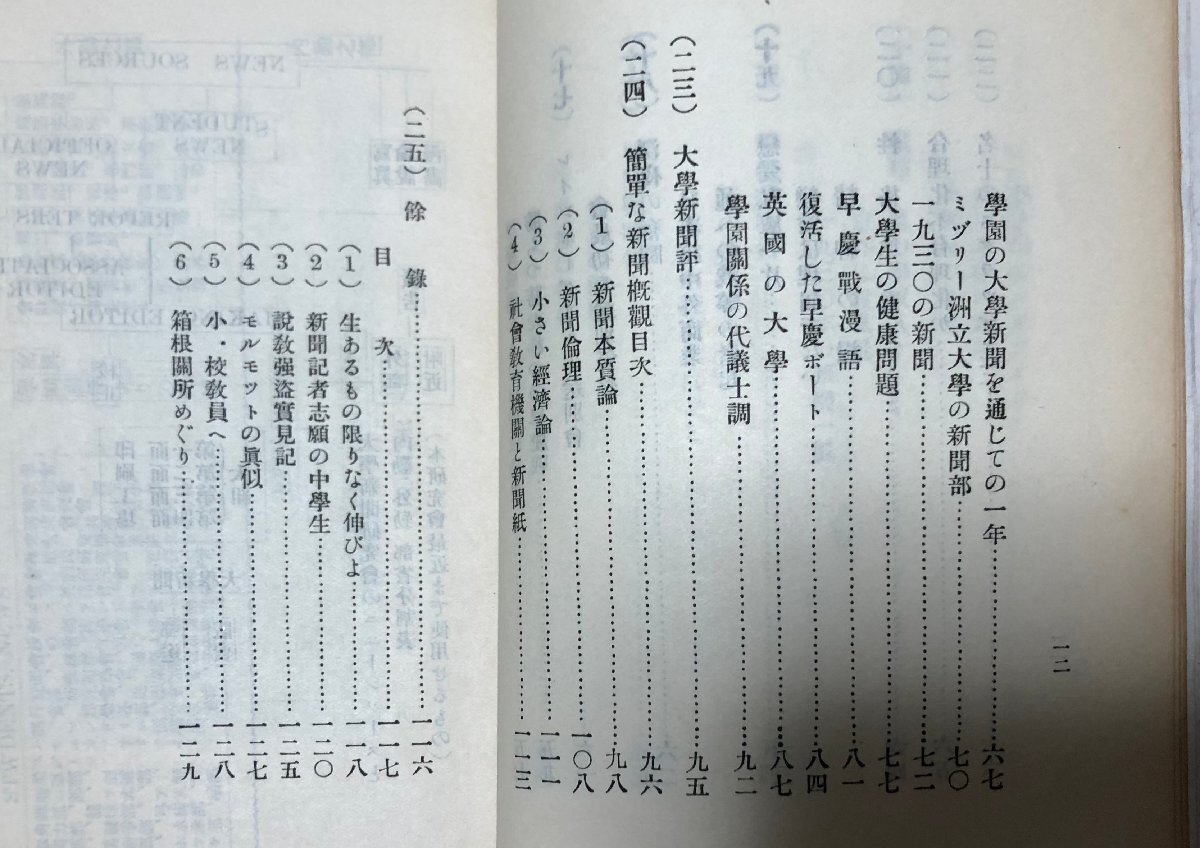 一二
學園の大學新聞を通じての一年……………六七
ミヅリー洲立大學の新聞部……………七〇
一九三〇の新聞……………七二
大學生の健康問題……………七七
早慶戰漫語……………八一
復活した早慶ボート……………八四
英國の大學……………八七
學園關係の代議士調……………九二
（二三）大學新聞評……………九五
（二四）簡單な新聞概觀目次……………九六
（1）新聞本質論……………九八
（2）新聞倫理……………一〇八
（3）小さい經濟論……………一一一
（4）社會敎育機關と新聞紙……………一一三
（二五）餘錄……………一一六
目次……………一一七
（1）生あるもの限りなく伸びよ……………一一八
（2）新聞記者志願の中學生……………一二〇
（3）說敎强盜實見記……………一二五
（4）モルモツトの眞似……………一二七
（5）小・校敎員へ……………一二八
（6）箱根關所めぐり……………一二九